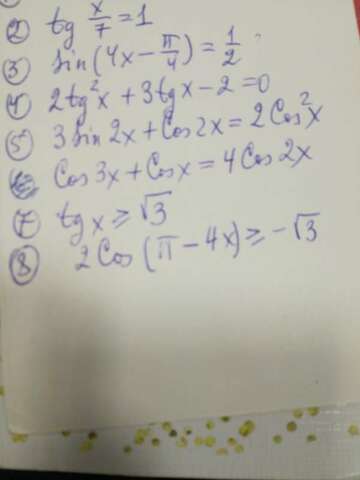 ② tg x/7 = 1
③ sin(4x − π/4) = 1/2
④ 2tg²x + 3tgx − 2 = 0
⑤ 3sin 2x + Cos 2x = 2Cos²x
Cos 3x + Cos x = 4Cos 2x
⑦ tgx ≥ √3
⑧ 2Cos (π − 4x) ≥ −√3